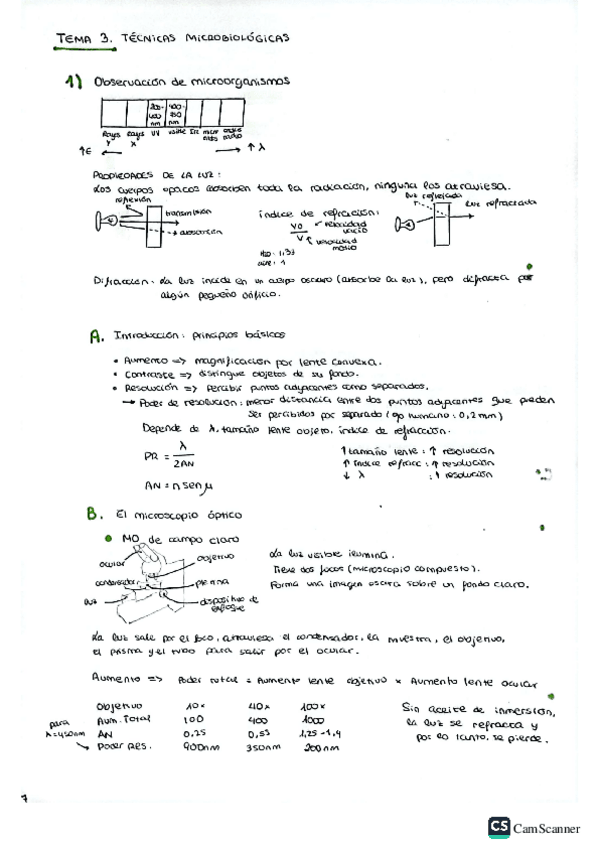 TEMA 3. TÉCNICAS MICROBIOLÓGICAS
1) Observación de microorganismos
200-400 nm
400-750 nm
Rayos γ Rayos X UV visible IR micro ondas ondas radio
↑E ← → ↑λ
PROPIEDADES DE LA LUZ:
Los cuerpos opacos absorben toda la radiación, ninguna los atraviesa.
reflexión
transmisión
absorción
índice de refracción:
V0 ← velocidad vacío
V ← velocidad medio
H2O: 1,33
aire: 1
luz reflejada
luz refractada
Difracción: La luz incide en un cuerpo oscuro (absorbe la luz), pero difracta por
algún pequeño orificio.
A. Introducción: principios básicos
• Aumento => magnificación por lente convexa.
• Contraste => distingue objetos de su fondo.
• Resolución => Percibir puntos adyacentes como separados.
→ Poder de resolución: menor distancia entre dos puntos adyacentes que pueden
ser percibidos por separado (ojo humano: 0,2mm)
Depende de λ, tamaño lente objeto, índice de refracción.
PR = λ / 2AN
AN = n sen μ
↑ tamaño lente: ↑ resolución
↑ índice refracc: ↑ resolución
↓ λ : ↑ resolución
B. El microscopio óptico
• MO de campo claro
ocular
objetivo
condensador
platina
luz
dispositivo de enfoque
La luz visible ilumina.
Tiene dos focos (microscopio compuesto).
Forma una imagen oscura sobre un fondo claro.
La luz sale por el foco, atraviesa el condensador, la muestra, el objetivo,
el prisma y el tubo para salir por el ocular.
Aumento => Poder total = Aumento lente objetivo x Aumento lente ocular
Objetivo 10x 40x 100x
Aum. Total 100 400 1000
AN 0,25 0,55 1,25-1,4
Poder Res. 900nm 350nm 200nm
para λ=450nm
Sin aceite de inmersión,
la luz se refracta y
por lo tanto, se pierde.
7
CS CamScanner